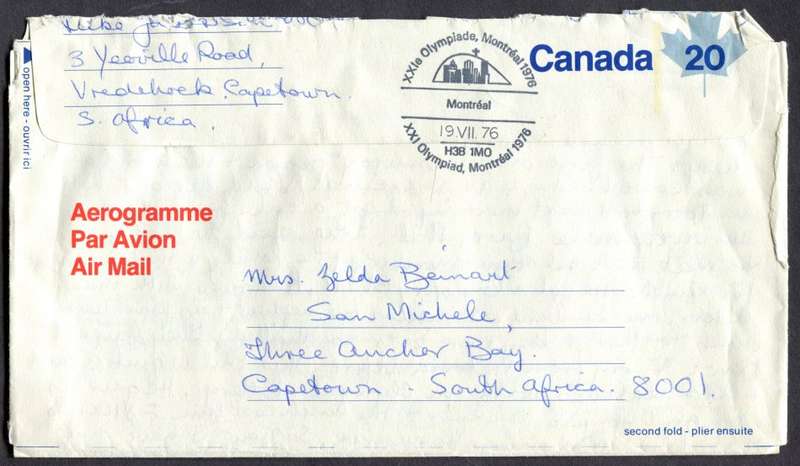 3 Yeoville Road,
Vredehoek, Capetown.
S. Africa.
open here - ouvrir ici
XXIe Olympiade, Montréal 1976
Montréal
19 VII. 76
H3B 1M0
XXI Olympiad, Montréal 1976
Canada 20
Aerogramme
Par Avion
Air Mail
Mrs. Zelda Beinart
San Michele,
Three Ancher Bay.
Capetown - South Africa. 8001.
second fold - plier ensuite